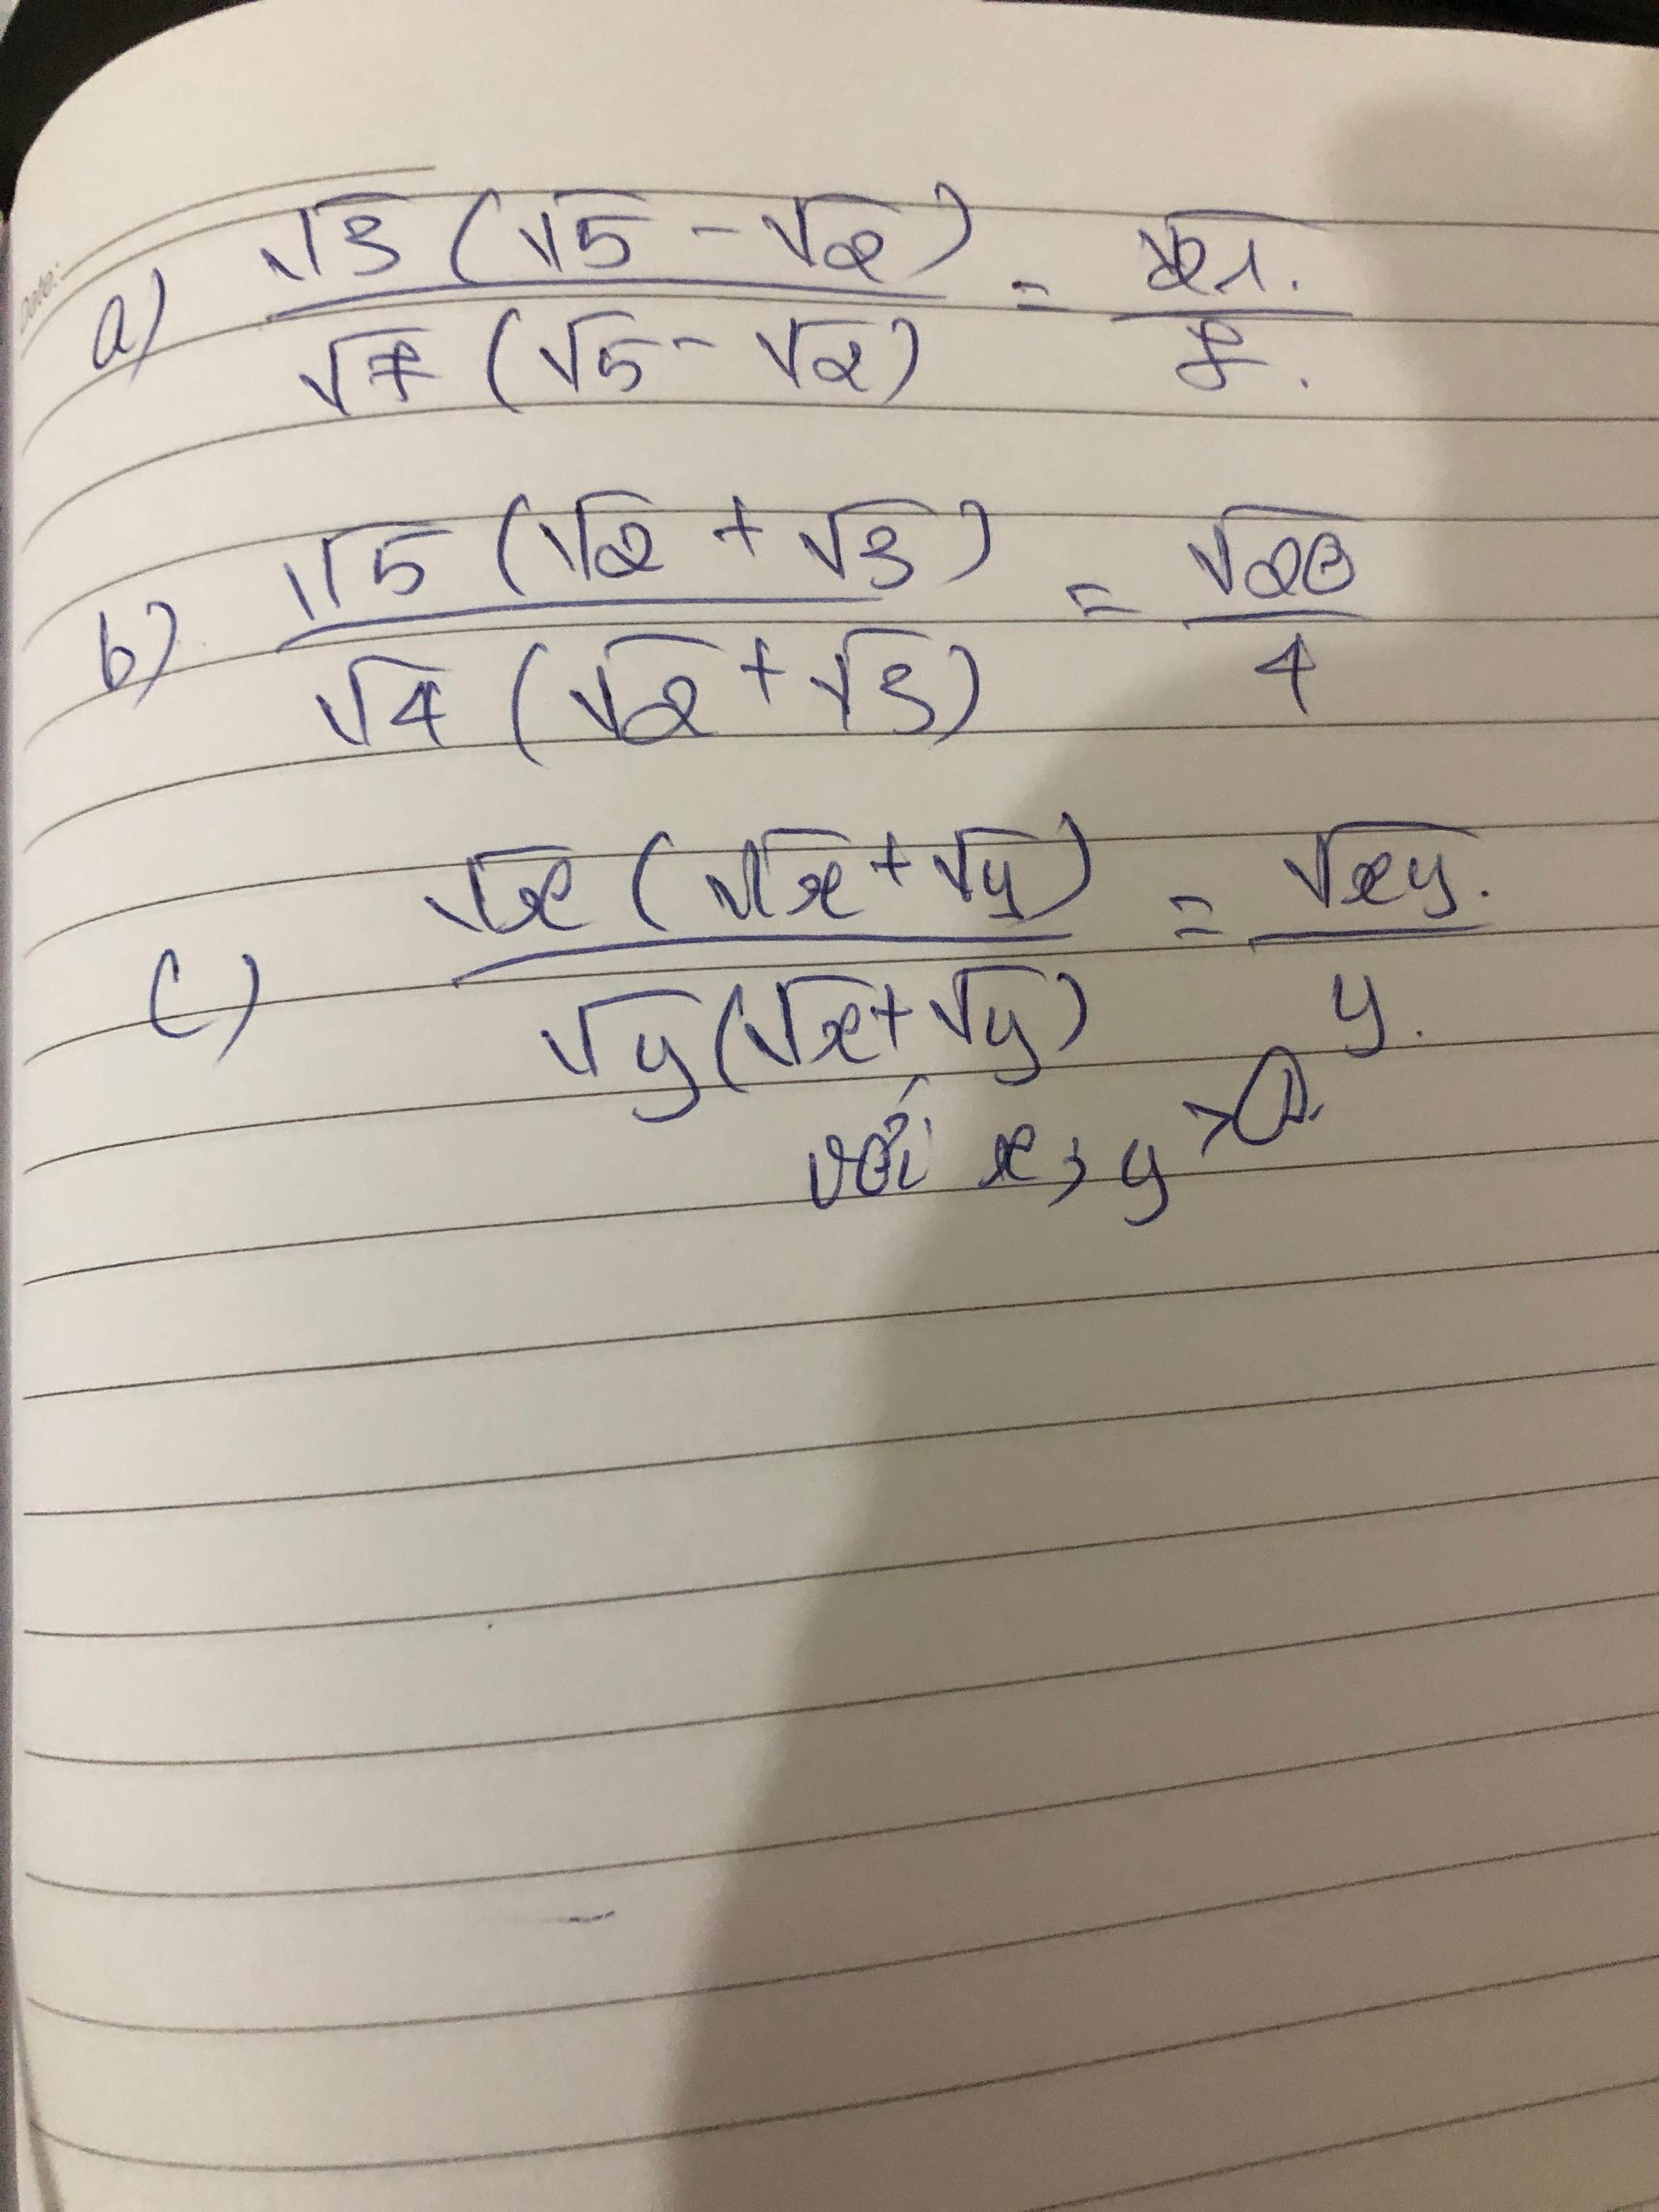 Date:
a) √3 (√5 - √2) / √7 (√5 - √2) = √21. / 7.
b) √5 (√2 + √3) / √4 (√2 + √3) = √20 / 4
c) √x (√x + √y) / √y (√x + √y) = √xy. / y.
với x, y > 0.